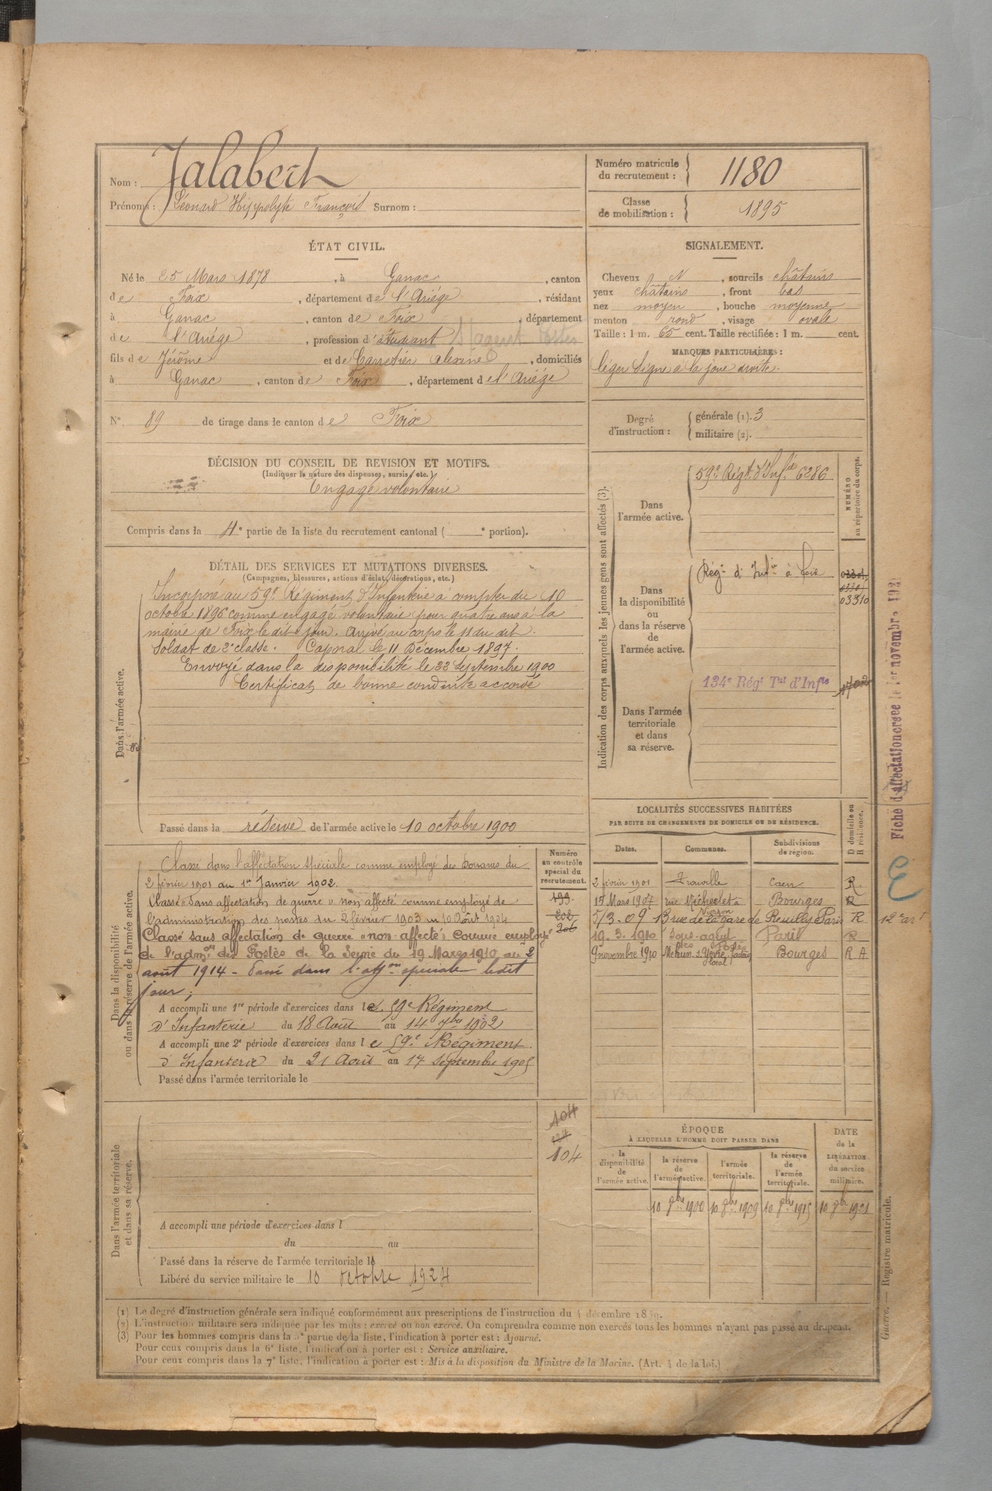 Nom : Jalabert
Prénoms : Léonard Hippolyte François Surnom :
Numéro matricule du recrutement : 1180
Classe de mobilisation : 1895
ÉTAT CIVIL.
Né le 25 Mars 1878, à Ganac, canton
de Foix, département de l'Ariège, résidant
à Ganac, canton de Foix, département
de l'Ariège, profession d'étudiant
fils de Jérôme et de Carretier, domiciliés
à Ganac, canton de Foix, département de l'Ariège
N° 89 de tirage dans le canton de Foix
SIGNALEMENT.
Cheveux N, sourcils châtains
yeux châtains, front bas
nez moyen, bouche moyenne
menton rond, visage ovale
Taille : 1 m. 65 cent. Taille rectifiée : 1 m. cent.
MARQUES PARTICULIÈRES :
léger signe à la joue droite.
Degré d'instruction : générale (1). 3
militaire (2).
DÉCISION DU CONSEIL DE REVISION ET MOTIFS.
(Indiquer la nature des dispenses, sursis, etc.)
Engagé volontaire
Compris dans la 4e partie de la liste du recrutement cantonal ( e portion).
DÉTAIL DES SERVICES ET MUTATIONS DIVERSES.
(Campagnes, blessures, actions d'éclat, décorations, etc.)
Dans l'armée active.
Incorporé au 59e Régiment d'Infanterie à compter du 10
octobre 1896 comme engagé volontaire pour quatre ans à la
mairie de Foix le dit jour. Arrivé au corps le 11 du dit.
Soldat de 2e classe. Caporal le 11 Décembre 1897.
Envoyé dans la disponibilité le 22 Septembre 1900
Certificat de bonne conduite accordé
Passé dans la réserve de l'armée active le 10 octobre 1900
Indication des corps auxquels les jeunes gens sont affectés (3).
NUMÉRO au répertoire du corps.
Dans l'armée active.
59e Régt d'Infie 6286
Dans la disponibilité ou dans la réserve de l'armée active.
Régt d'Infie à Foix
03310
Dans l'armée territoriale et dans sa réserve.
134e Régt Tal d'Infie
Fiche d'affectation
1er novembre
Dans la disponibilité ou dans la réserve de l'armée active.
Numéro au contrôle spécial du recrutement.
Classé dans l'affectation spéciale comme employé des Douanes du
2 février 1901 au 1er Janvier 1902.
Classé sans affectation de guerre "non affecté" comme employé de
l'administration des postes du 2 février 1903 au 10 Août 1904
Classé sans affectation de guerre "non affecté" comme employé
de l'admon des Postes de la Seine du 19 Mars 1910 au 2
août 1914 - Passé dans l'affon spéciale ledit
jour ;
A accompli une 1re période d'exercices dans le 59e Régiment
d'Infanterie du 18 Août au 14 7bre 1902
A accompli une 2e période d'exercices dans le 59e Régiment
d'Infanterie du 21 Août au 17 Septembre 1905
Passé dans l'armée territoriale le
199
206
LOCALITÉS SUCCESSIVES HABITÉES
PAR SUITE DE CHANGEMENTS DE DOMICILE OU DE RÉSIDENCE.
D domicile ou R résidence.
Dates. Communes. Subdivisions de région.
2 février 1901 Trouville Caen R
15 Mars 1904 rue Michelet Bourges R
5/3.09 13 rue de la gare de Reuilly Paris R
19.3.1910 Paris R
9 novembre 1920 Mehun s/Yèvre Bourges R A
E
Dans l'armée territoriale et dans sa réserve.
104
104
A accompli une période d'exercices dans l
du au
Passé dans la réserve de l'armée territoriale le
Libéré du service militaire le 10 octobre 1924
ÉPOQUE
À LAQUELLE L'HOMME DOIT PASSER DANS
la disponibilité de l'armée active.
la réserve de l'armée active.
l'armée territoriale.
la réserve de l'armée territoriale.
DATE de la LIBÉRATION du service militaire.
10 8bre 1900 10 8bre 1909 10 8bre 1915 10 8bre 1921
Guerre. — Registre matricule.
(1) Le degré d'instruction générale sera indiqué conformément aux prescriptions de l'instruction du 4 décembre
(2) L'instruction militaire sera indiquée par les mots : exercé ou non exercé. On comprendra comme non exercés tous les hommes n'ayant pas passé au drapeau.
(3) Pour les hommes compris dans la 5e partie de la liste, l'indication à porter est : Ajourné.
Pour ceux compris dans la 6e liste, l'indication à porter est : Service auxiliaire.
Pour ceux compris dans la 7e liste, l'indication à porter est : Mis à la disposition du Ministre de la Marine. (Art. 4 de la loi.)